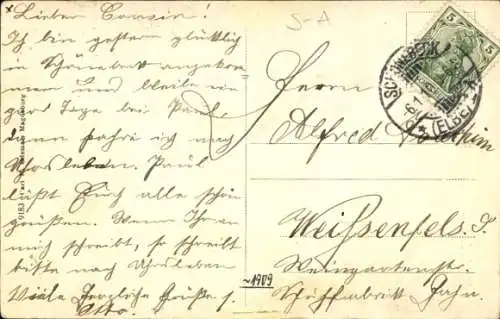 Lieber Cousin!
Ich bin gestern glücklich
in Schönebeck angekom
men und bleibe ein
paar Tage bei Paul
dann fahre ich nach
Paul
läßt Euch alle schön
grüßen. Wenn Ihr an
mich schreibt, so schreibt
bitte nach
Viele herzliche Grüße
Otto.
S-A
Herrn
Alfred
Weißenfels a. S.
Weingartenstr.
~1909
SCHÖNEBECK
(ELBE)
5
5
9183
Magdeburg